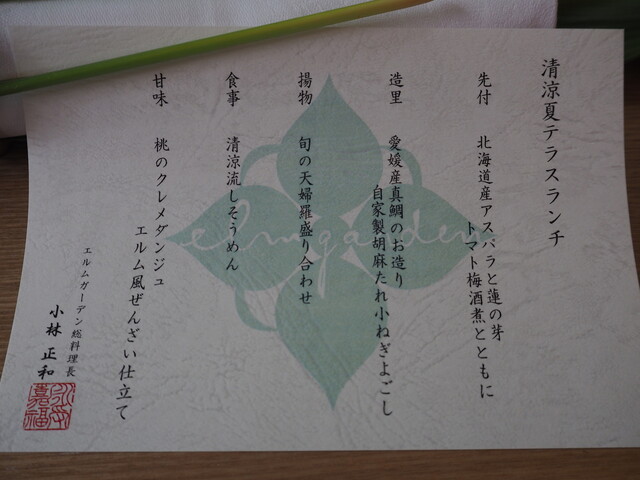 清涼夏テラスランチ
先付 北海道産アスパラと蓮の芽
トマト梅酒煮とともに
造里 愛媛産真鯛のお造り
自家製胡麻たれ小ねぎよごし
揚物 旬の天婦羅盛り合わせ
食事 清涼流しそうめん
甘味 桃のクレメダンジュ
エルム風ぜんざい仕立て
エルムガーデン総料理長
小林 正和
elmgarden